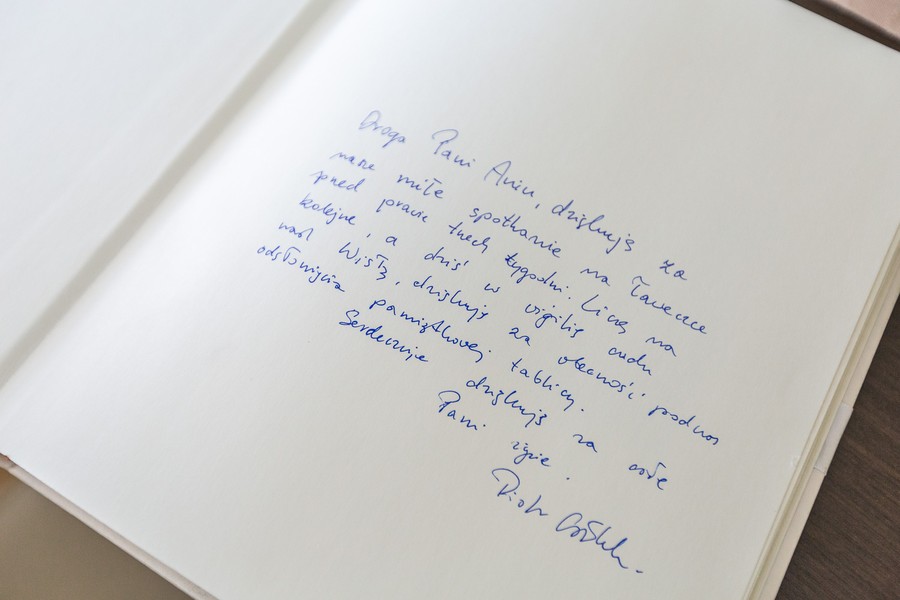 Droga Pani Aniu, dziękuję za
nasze miłe spotkanie na Ławeczce
przed prawie trzech tygodni. Liczę na
kolejne, a dziś w wigilię cudu
nad Wisłą, dziękuję za obecność podczas
odsłonięcia pamiątkowej tablicy.
Serdecznie dziękuję za całe
Pani życie.
Piotr